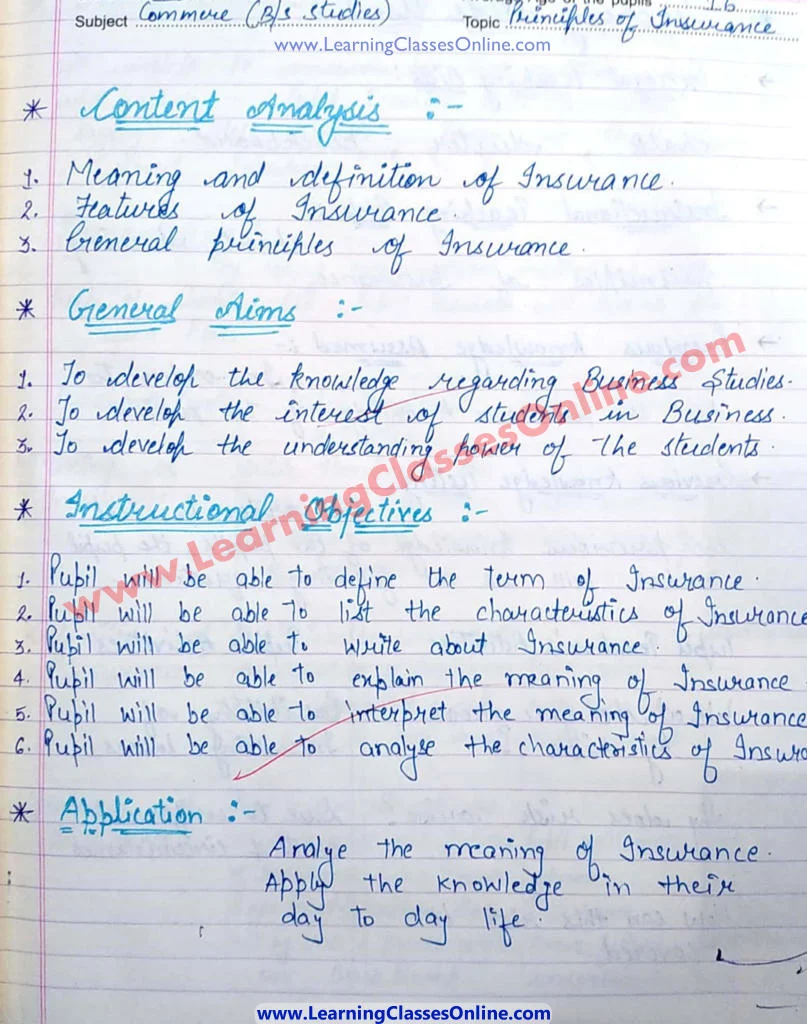 Average Age of the pupils 16
Subject Commerce (B/s studies) Topic Principles of Insurance
www.LearningClassesOnline.com
* Content Analysis :-
1. Meaning and definition of Insurance.
2. Features of Insurance.
3. General principles of Insurance.
* General Aims :-
1. To develop the knowledge regarding Business Studies.
2. To develop the interest of students in Business.
3. To develop the understanding power of the students.
www.LearningClassesOnline.com
* Instructional Objectives :-
1. Pupil will be able to define the term of Insurance.
2. Pupil will be able to list the characteristics of Insurance
3. Pupil will be able to write about Insurance.
4. Pupil will be able to explain the meaning of Insurance
5. Pupil will be able to interpret the meaning of Insurance
6. Pupil will be able to analyse the characteristics of Insura
* Application :-
Analye the meaning of Insurance.
Apply the knowledge in their
day to day life.
www.LearningClassesOnline.com